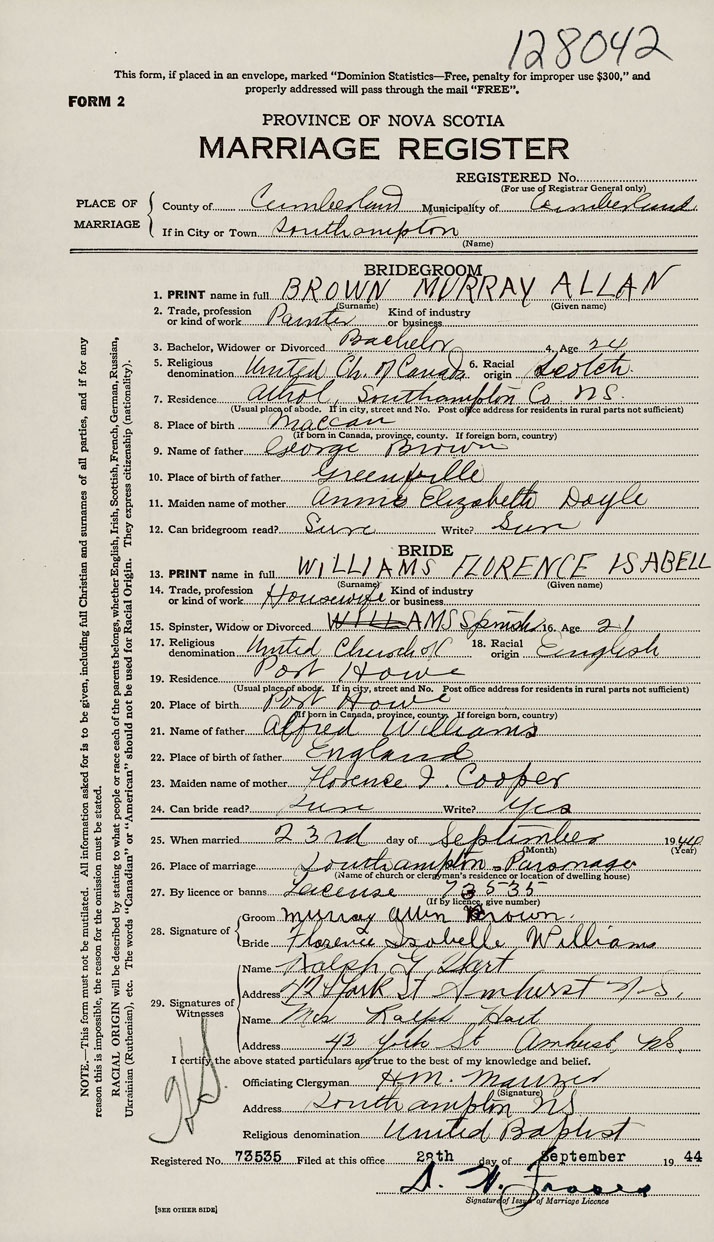 128042
This form, if placed in an envelope, marked "Dominion Statistics—Free, penalty for improper use $300," and
properly addressed will pass through the mail "FREE".
FORM 2
PROVINCE OF NOVA SCOTIA
MARRIAGE REGISTER
REGISTERED No.
(For use of Registrar General only)
PLACE OF MARRIAGE
County of Cumberland Municipality of Cumberland
If in City or Town Southampton
(Name)
BRIDEGROOM
1. PRINT name in full BROWN MURRAY ALLAN
(Surname) (Given name)
2. Trade, profession or kind of work Painter Kind of industry or business
3. Bachelor, Widower or Divorced Bachelor 4. Age 24
5. Religious denomination United Ch. of Canada 6. Racial origin Scotch
7. Residence Athol, Southampton Co NS.
(Usual place of abode. If in city, street and No. Post office address for residents in rural parts not sufficient)
8. Place of birth Maccan
(If born in Canada, province, county. If foreign born, country)
9. Name of father George Brown
10. Place of birth of father Greenville
11. Maiden name of mother Annie Elizabeth Doyle
12. Can bridegroom read? Sure Write? Sure
BRIDE
13. PRINT name in full WILLIAMS FLORENCE ISABELL
(Surname) (Given name)
14. Trade, profession or kind of work Housewife Kind of industry or business
15. Spinster, Widow or Divorced WILLIAMS Spinster 16. Age 21
17. Religious denomination United Church 18. Racial origin English
19. Residence Port Howe
(Usual place of abode. If in city, street and No. Post office address for residents in rural parts not sufficient)
20. Place of birth Port Howe
(If born in Canada, province, county. If foreign born, country)
21. Name of father Alfred Williams
22. Place of birth of father England
23. Maiden name of mother Florence I. Cooper
24. Can bride read? Sure Write? Yes
25. When married 23rd day of September 1944
(Month) (Year)
26. Place of marriage Southampton Parsonage
(Name of church or clergyman's residence or location of dwelling house)
27. By licence or banns License 73535
(If by licence, give number)
28. Signature of
Groom Murray Allan Brown
Bride Florence Isabelle Williams
29. Signatures of Witnesses
Name Ralph G Hart
Address 42 York St Amherst N.S.
Name Mrs Ralph Hart
Address 42 York St Amherst, N.S.
I certify the above stated particulars are true to the best of my knowledge and belief.
Officiating Clergyman H.M. Manzer
(Signature)
Address Southampton NS
Religious denomination United Baptist
Registered No. 73535 Filed at this office 28th day of September 1944
Signature of Issuer of Marriage Licence
[SEE OTHER SIDE]
NOTE.—This form must not be mutilated. All information asked for is to be given, including full Christian and surnames of all parties, and if for any
reason this is impossible, the reason for the omission must be stated.
RACIAL ORIGIN will be described by stating to what people or race each of the parents belongs, whether English, Irish, Scottish, French, German, Russian,
Ukrainian (Ruthenian), etc. The words "Canadian" or "American" should not be used for Racial Origin. They express citizenship (nationality).